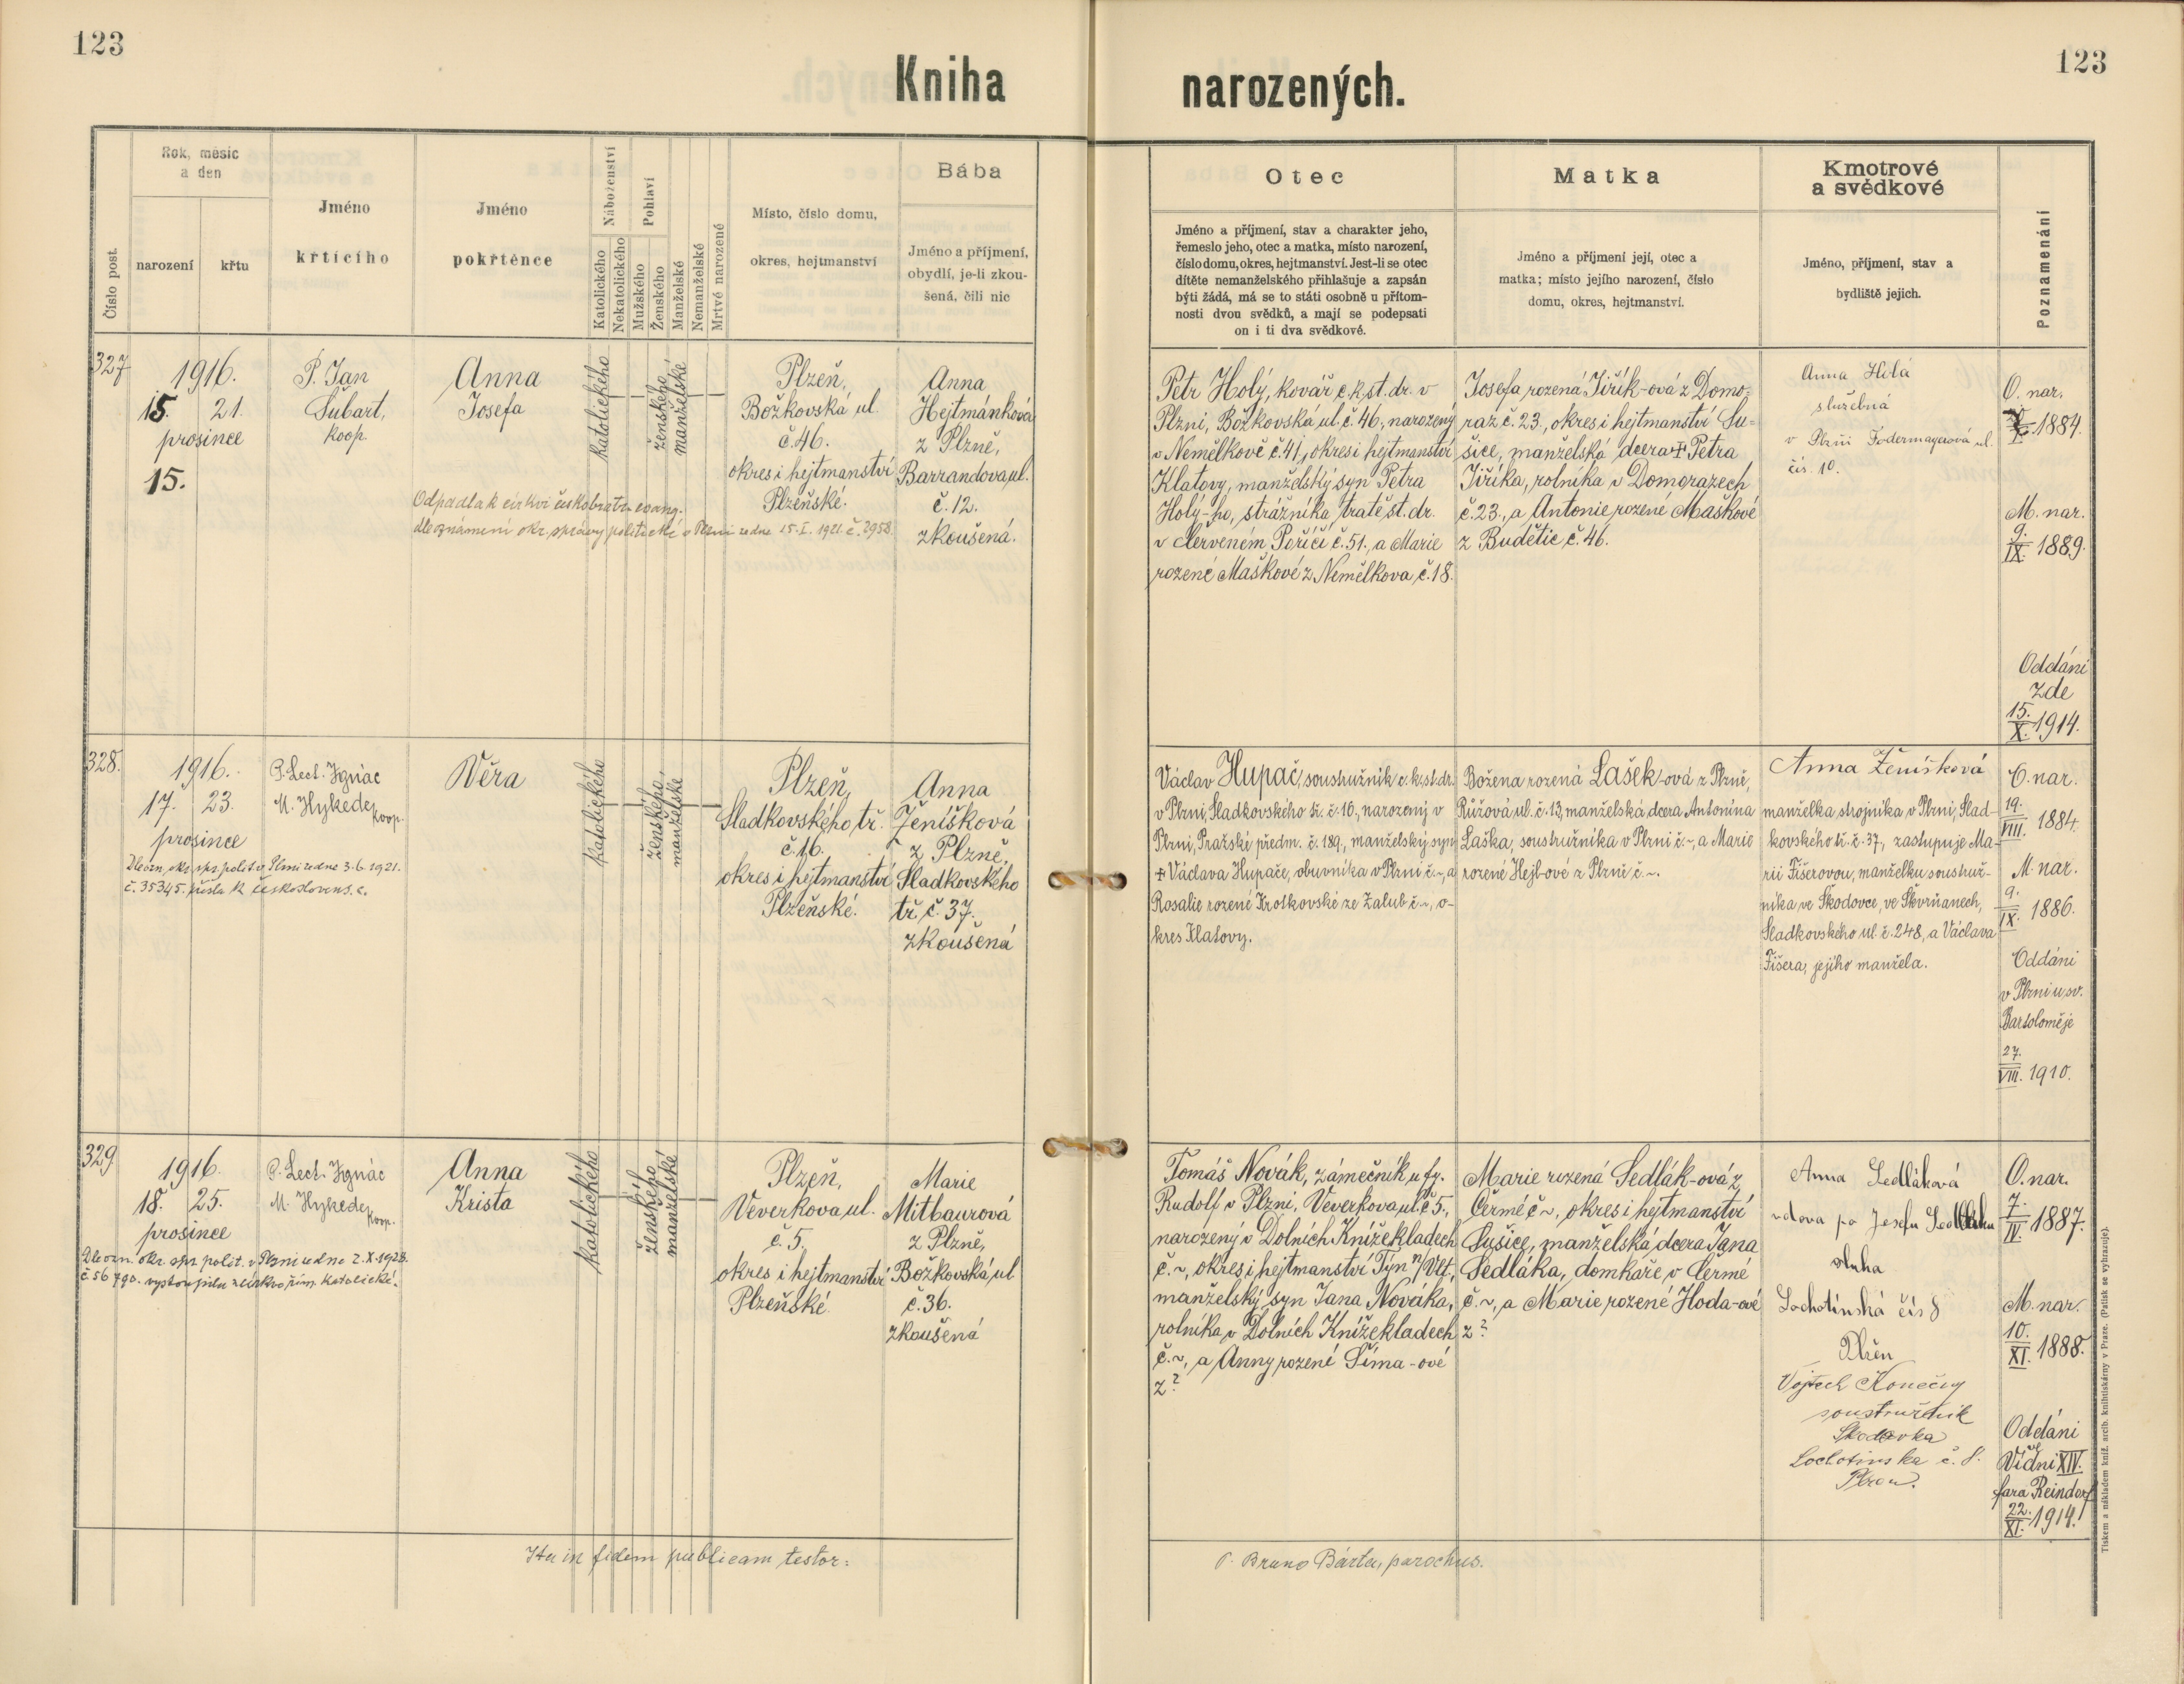 123
Kniha
narozených.
123
Číslo post.
Rok, měsíc
a den
narození
křtu
Jméno
křtícího
Jméno
pokřtěnce
Náboženství
Katolického
Nekatolického
Pohlaví
Mužského
Ženského
Manželské
Nemanželské
Mrtvé narozené
Místo, číslo domu,
okres, hejtmanství
Bába
Jméno a příjmení,
obydlí, je-li zkou-
šená, čili nic
Otec
Jméno a příjmení, stav a charakter jeho,
řemeslo jeho, otec a matka, místo narození,
číslo domu, okres, hejtmanství. Jest-li se otec
dítěte nemanželského přihlašuje a zapsán
býti žádá, má se to státi osobně u přítom-
nosti dvou svědků, a mají se podepsati
on i ti dva svědkové.
Matka
Jméno a příjmení její, otec a
matka; místo jejího narození, číslo
domu, okres, hejtmanství.
Kmotrové
a svědkové
Jméno, příjmení, stav a
bydliště jejich.
Poznamenání
327
1916.
15. 21.
prosince
15.
P. Jan
Šubart,
koop.
Anna
Josefa
katolického
ženského
manželské
Plzeň,
Božkovská ul.
č. 46.
okres i hejtmanství
Plzeňské.
Anna
Hejtmánková
z Plzně,
Barrandova ul.
č. 12.
zkoušená.
Odpadla k církvi českobratr. evang.
dle oznámení okr. správy politické v Plzni ze dne 15. I. 1921. č. 2958
Petr Holý, kovář c. k. st. dr. v
Plzni, Božkovská ul. č. 46, narozený
v Nemělkově č. 41, okres i hejtmanství
Klatovy, manželský syn Petra
Holý-ho, strážníka tratě st. dr.
v Červeném Poříčí č. 51., a Marie
rozené Maškové z Nemělkova č. 18.
Josefa rozená Jiřík-ová z Domo-
raz č. 23., okres i hejtmanství Su-
šice, manželská dcera + Petra
Jiříka, rolníka v Domorazech
č. 23., a Antonie rozené Maškové
z Budětic č. 46.
Anna Hilá
služebná
v Plzni Fodermayerová ul.
čís. 10.
O. nar.
X. 1884.
M. nar.
9.
IX. 1889.
Oddáni
zde
15.
X. 1914.
328.
1916.
17. 23.
prosince
Dle ozn. okr. spr. polit. v Plzni ze dne 3. 6. 1921.
č. 35345. přišla k českoslovens. c.
P. Lect. Ignác
M. Hykede,
koop.
Věra
katolického
ženského,
manželské
Plzeň,
Sladkovského tř.
č. 16.
okres i hejtmanství
Plzeňské.
Anna
Ženíšková
z Plzně,
Sladkovského
tř. č. 37.
zkoušená
Václav Hupač, soustružník c. k. st. dr.
v Plzni, Sladkovského tř. č. 16., narozený v
Plzni, Pražské předm. č. 189., manželský syn
+ Václava Hupače, obuvníka v Plzni č. ~, a
Rosalie rozené Krotkovské ze Žalub č. ~, o-
kres Klatovy.
Božena rozená Lašek-ová z Plzně,
Růžová ul. č. 13, manželská dcera Antonína
Laška, soustružníka v Plzni č. ~, a Marie
rozené Hejl-ové z Plzně č. ~.
Anna Ženíšková
manželka strojníka v Plzni, Slad-
kovského tř. č. 37, zastupuje Ma-
rii Fišerovou, manželku soustruž-
níka ve Škodovce, ve Skvrňanech,
Sladkovského ul. č. 248, a Václava
Fišera, jejího manžela.
O. nar.
19.
VIII. 1884.
M. nar.
9.
IX. 1886.
Oddáni
v Plzni u sv.
Bartoloměje
27.
VIII. 1910.
329
1916.
18. 25.
prosince
Dle ozn. okr. spr. polit. v Plzni ze dne 2. X. 1928.
č. 56790. vystoupila z církve řím. katolické.
P. Lect. Ignác
M. Hykede,
koop.
Anna
Krista
katolického
ženského
manželské
Plzeň,
Veverkova ul.
č. 5.
okres i hejtmanství
Plzeňské.
Marie
Mitbaurová
z Plzně,
Božkovská ul
č. 36.
zkoušená
Tomáš Novák, zámečník u fy.
Rudolf v Plzni, Veverkova ul. č 5.,
narozený v Dolních Knížekladech
č. ~, okres i hejtmanství Týn n/Vlt,
manželský syn Jana Nováka,
rolníka v Dolních Knížekladech
č. ~, a Anny rozené Šíma-ové
z ?
Marie rozená Sedlák-ová z
Čermé č ~, okres i hejtmanství
Sušice, manželská dcera Jana
Sedláka, domkáře v Čermé
č. ~, a Marie rozené Hoda-ové
z ?
Anna Sedláková
vdova po Josefu
sluha
Lochotínská čís 8
Plzen
Vojtech Konečný
soustružnik
Skodovka
Lochotinska č. 8.
Plzen.
O. nar.
7.
IV. 1887.
M. nar.
10.
XI. 1888.
Oddáni
ve
Vídni XIV.
fara Reindorf
22.
XI. 1914.
Ita in fidem publicam testor:
P. Bruno Bárta, parochus.
Tiskem a nákladem kníž. arcib. knihtiskárny v Praze. (Patisk se vyhrazuje).